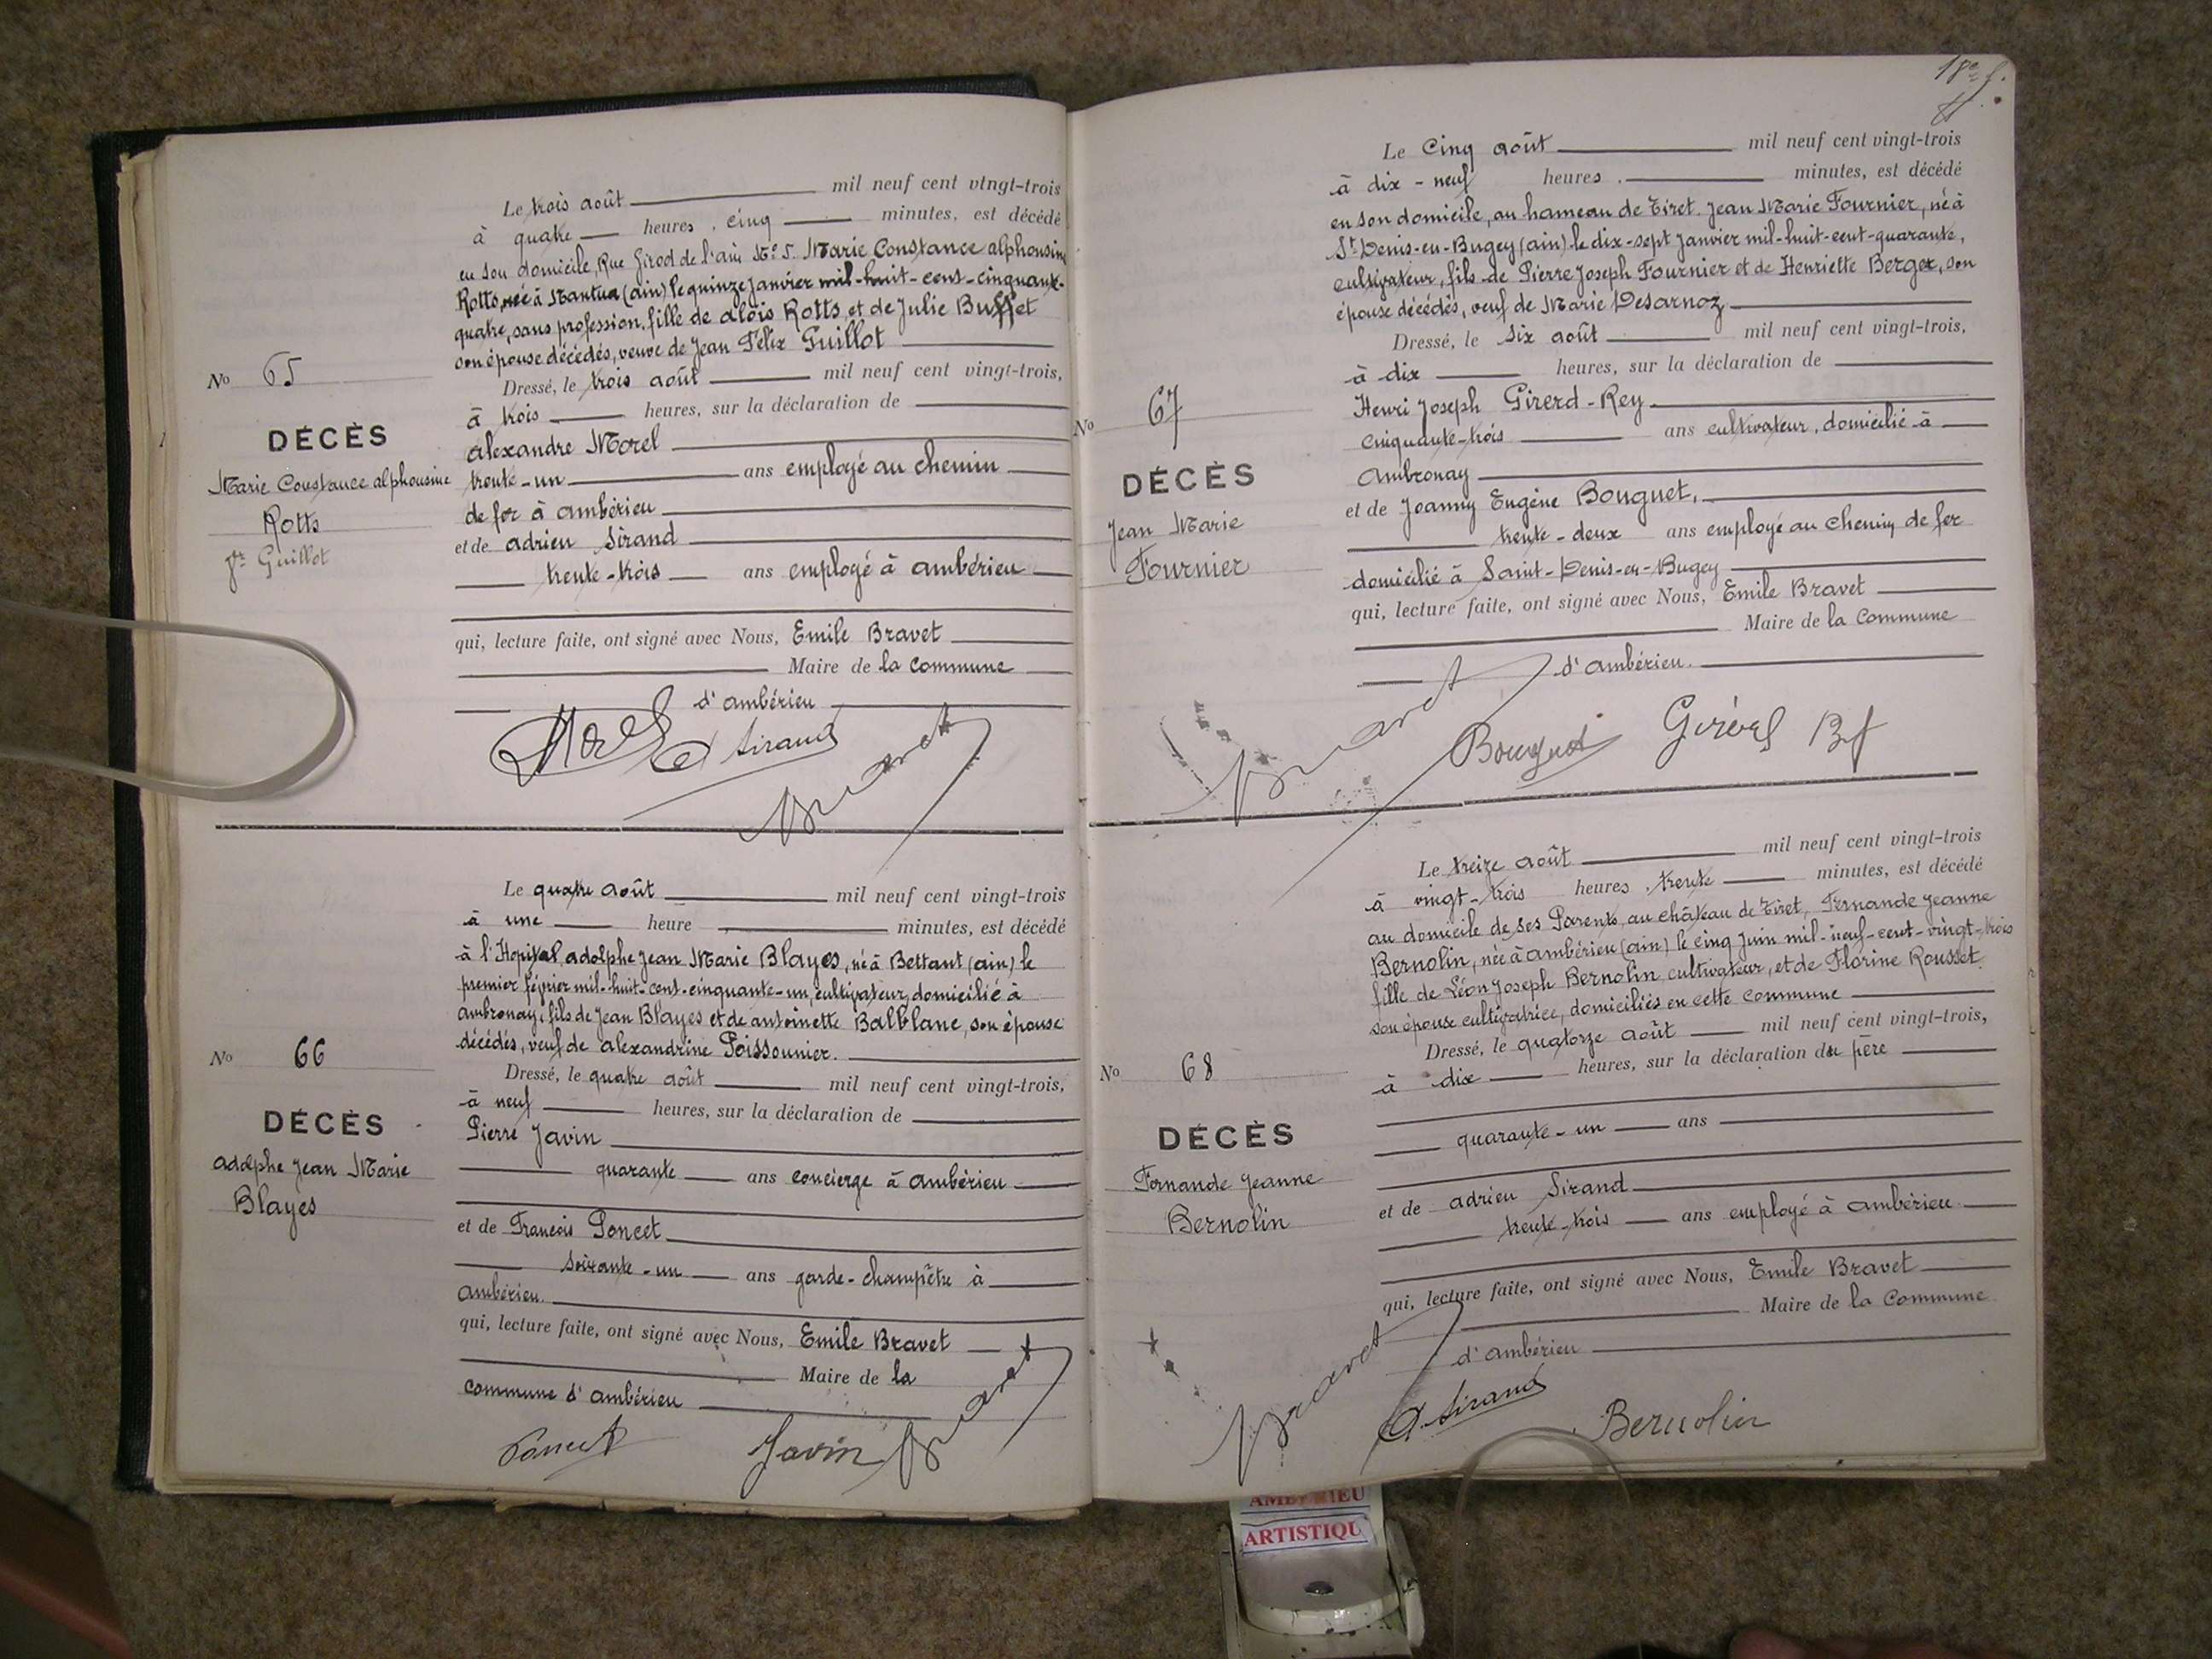 Le trois août mil neuf cent vingt-trois
à quatre heures, cinq minutes, est décédé
en son domicile, Rue Girod de l'ain No 5. Marie Constance alphonsine
Rotts, née à Nantua (ain) le quinze Janvier mil-huit-cent-cinquante-
quatre, sans profession, fille de alois Rotts et de Julie Buffet
son épouse décédés, veuve de Jean Félix Guillot
No 65
Dressé, le trois août mil neuf cent vingt-trois,
à trois heures, sur la déclaration de
DÉCÈS
alexandre Morel
Marie Constance alphonsine
trente-un ans employé au chemin
Rotts
de fer à ambérieu
Vve Guillot
et de adrien Sirand
trente-trois ans employé à ambérieu
qui, lecture faite, ont signé avec Nous, Emile Bravet
Maire de la commune
d'ambérieu
Morel A Sirand Bravet
Le quatre août mil neuf cent vingt-trois
à une heure minutes, est décédé
à l'Hopital adolphe Jean Marie Blayes, né à Bettant (ain) le
premier février mil-huit-cent-cinquante-un, cultivateur, domicilié à
ambronay, fils de Jean Blayes et de antoinette Balblanc, son épouse
décédés, veuf de alexandrine Poissonnier.
No 66
Dressé, le quatre août mil neuf cent vingt-trois,
à neuf heures, sur la déclaration de
DÉCÈS
Pierre Javin
adolphe Jean Marie
quarante ans concierge à ambérieu
Blayes
et de Francois Poncet
soixante-un ans garde-champêtre à
ambérieu.
qui, lecture faite, ont signé avec Nous, Emile Bravet
Maire de la
commune d'ambérieu
Poncet Javin Bravet
18e f.
Le Cinq août mil neuf cent vingt-trois
à dix-neuf heures. minutes, est décédé
en son domicile, au hameau de Tiret. Jean Marie Fournier, né à
St Denis-en-Bugey (ain) le dix-sept Janvier mil-huit-cent-quarante,
cultivateur, fils de Pierre Joseph Fournier et de Henriette Berger, son
épouse décédés, veuf de Marie Desarnoz
Dressé, le six août mil neuf cent vingt-trois,
à dix heures, sur la déclaration de
No 67
Henri Joseph Girerd-Rey
cinquante-trois ans cultivateur, domicilié à
DÉCÈS
Ambronay
Jean Marie
et de Joanny Eugène Bouguet,
Fournier
trente-deux ans employé au chemin de fer
domicilié à Saint-Denis-en-Bugey
qui, lecture faite, ont signé avec Nous, Emile Bravet
Maire de la Commune
d'ambérieu.
Bravet Bouguet
Le treize août mil neuf cent vingt-trois
à vingt-trois heures, trente minutes, est décédé
au domicile de ses Parents, au château de Tiret, Fernande Jeanne
Bernolin, née à ambérieu (ain) le cinq Juin mil-neuf-cent-vingt-trois
fille de Léon Joseph Bernolin cultivateur, et de Florine Rousset
son épouse cultivatrice, domiciliés en cette commune
Dressé, le quatorze août mil neuf cent vingt-trois,
No 68
à dix heures, sur la déclaration du père
DÉCÈS
quarante-un ans
Fernande Jeanne
Bernolin
et de adrien Sirand
trente-trois ans employé à ambérieu
qui, lecture faite, ont signé avec Nous, Emile Bravet
Maire de la Commune
d'ambérieu
Bravet A. Sirand Bernolin
AMBERIEU
ARTISTIQU